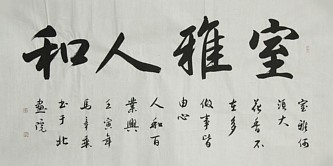 室雅人和
室雅何
须大
花香不
在多
做事皆
由心
人和百
业兴
壬寅年
马幸乘
书于北
画院